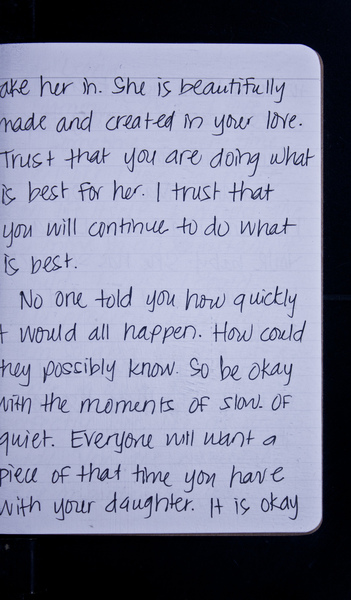 ake her in. She is beautifully
made and created in your love.
Trust that you are doing what
is best for her. I trust that
you will continue to do what
is best.
No one told you how quickly
t would all happen. How could
hey possibly know. So be okay
with the moments of slow. Of
quiet. Everyone will want a
piece of that time you have
with your daughter. It is okay